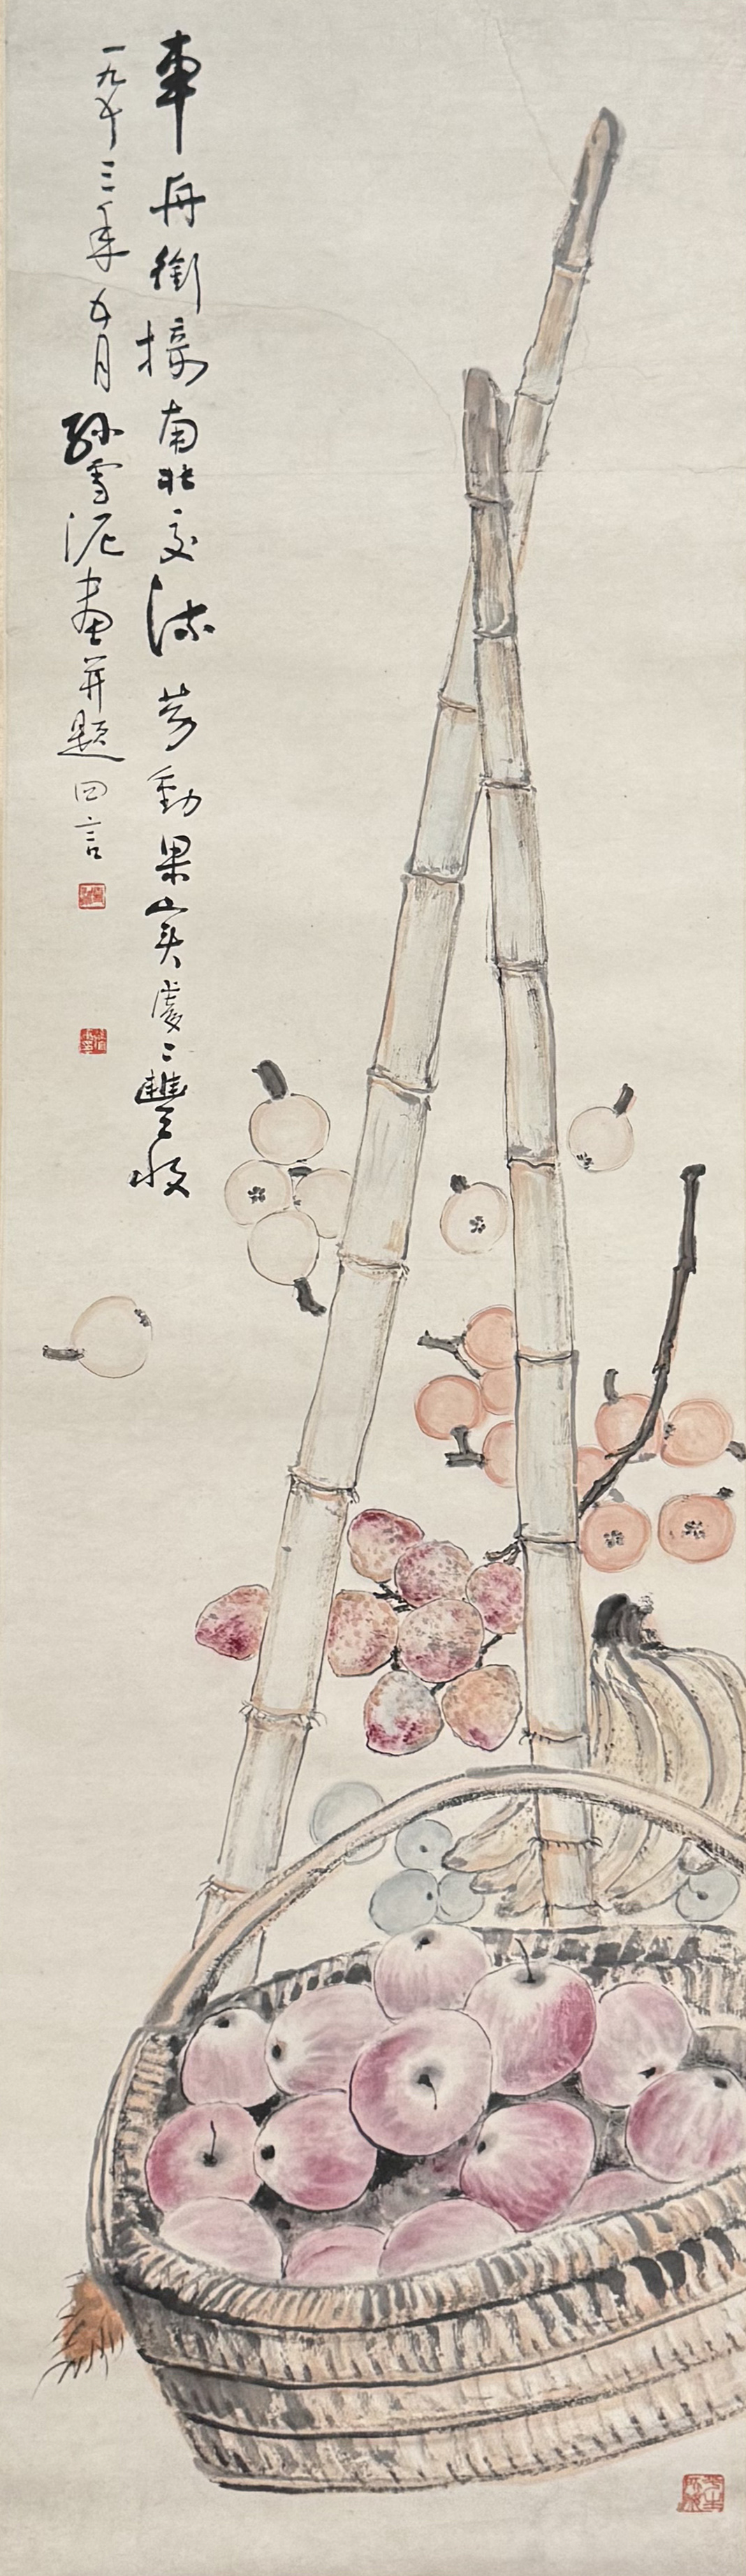 車舟銜接南北交流 勞動果實處〻豐收
一九五三年五月孫雪泥畫并題四言